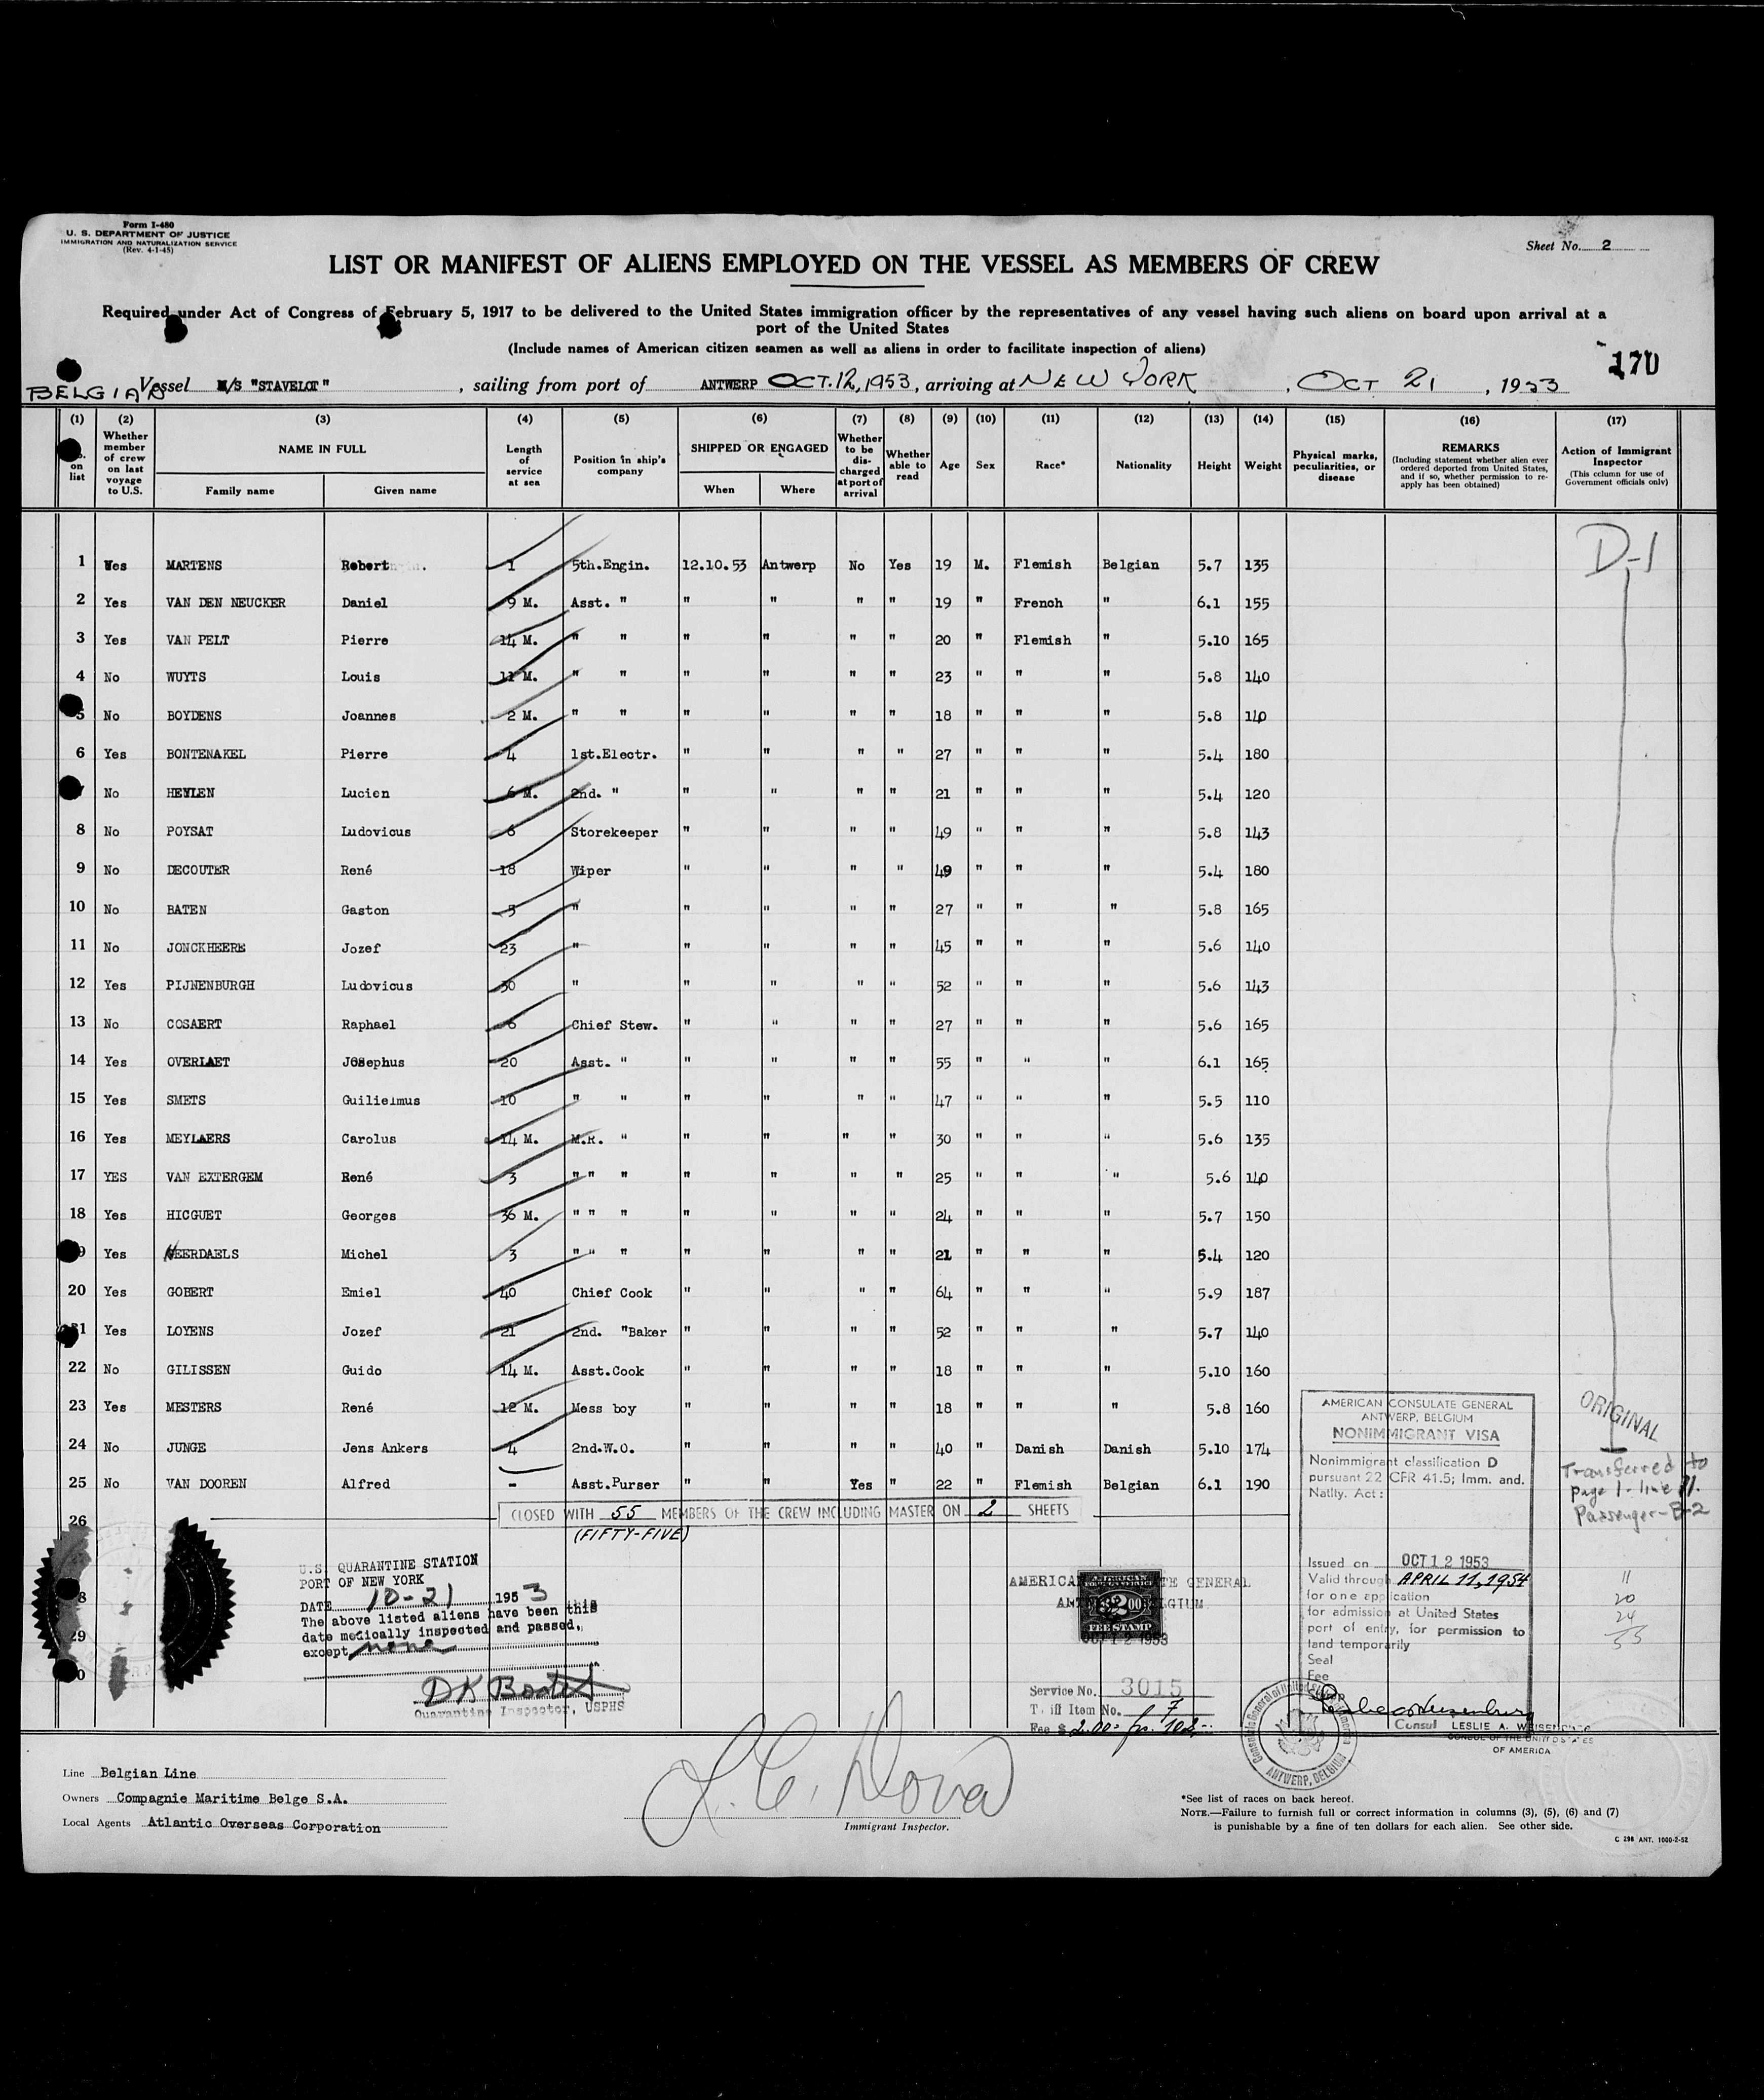 Form I-480
U. S. DEPARTMENT OF JUSTICE
IMMIGRATION AND NATURALIZATION SERVICE
(Rev. 4-1-45)
Sheet No. 2
LIST OR MANIFEST OF ALIENS EMPLOYED ON THE VESSEL AS MEMBERS OF CREW
Required under Act of Congress of February 5, 1917 to be delivered to the United States immigration officer by the representatives of any vessel having such aliens on board upon arrival at a
port of the United States
(Include names of American citizen seamen as well as aliens in order to facilitate inspection of aliens)
170
BELGIAN Vessel M/S "STAVELOT", sailing from port of ANTWERP OCT. 12, 1953, arriving at NEW YORK, OCT 21, 1953
(1) (2) (3) (4) (5) (6) (7) (8) (9) (10) (11) (12) (13) (14) (15) (16) (17)
on list
Whether member of crew on last voyage to U.S.
NAME IN FULL
Family name Given name
Length of service at sea
Position in ship's company
SHIPPED OR ENGAGED
When Where
Whether to be discharged at port of arrival
Whether able to read
Age Sex Race* Nationality Height Weight
Physical marks, peculiarities, or disease
REMARKS
(Including statement whether alien ever ordered deported from United States, and if so, whether permission to re-apply has been obtained)
Action of Immigrant Inspector
(This column for use of Government officials only)
D-1
1 Yes MARTENS Robert 1 5th.Engin. 12.10.53 Antwerp No Yes 19 M. Flemish Belgian 5.7 135
2 Yes VAN DEN NEUCKER Daniel 9 M. Asst. " " " " " 19 " French " 6.1 155
3 Yes VAN PELT Pierre 14 M. " " " " " " 20 " Flemish " 5.10 165
4 No WUYTS Louis 11 M. " " " " " " 23 " " " 5.8 140
5 No BOYDENS Joannes 2 M. " " " " " " 18 " " " 5.8 140
6 Yes BONTENAKEL Pierre 4 1st.Electr. " " " " 27 " " " 5.4 180
No HEYLEN Lucien 6 M. 2nd. " " " " " 21 " " " 5.4 120
8 No POYSAT Ludovicus 6 Storekeeper " " " " 49 " " " 5.8 143
9 No DECOUTER René 18 Wiper " " " " 49 " " " 5.4 180
10 No BATEN Gaston 5 " " " " " 27 " " " 5.8 165
11 No JONCKHEERE Jozef 23 " " " " " 45 " " " 5.6 140
12 Yes PIJNENBURGH Ludovicus 30 " " " " " 52 " " " 5.6 143
13 No COSAERT Raphael 6 Chief Stew. " " " " 27 " " " 5.6 165
14 Yes OVERLAET Josephus 20 Asst. " " " " " 55 " " " 6.1 165
15 Yes SMETS Guilielmus 10 " " " " " " 47 " " " 5.5 110
16 Yes MEYLAERS Carolus 14 M. M.R. " " " " " 30 " " " 5.6 135
17 YES VAN EXTERGEM René 3 " " " " " " " 25 " " " 5.6 140
18 Yes HICGUET Georges 36 M. " " " " " " " 24 " " " 5.7 150
9 Yes NEERDAELS Michel 3 " " " " " " " 21 " " " 5.4 120
20 Yes GOBERT Emiel 40 Chief Cook " " " " 64 " " " 5.9 187
1 Yes LOYENS Jozef 21 2nd. "Baker " " " " 52 " " " 5.7 140
22 No GILISSEN Guido 14 M. Asst.Cook " " " " 18 " " " 5.10 160
23 Yes MESTERS René 12 M. Mess boy " " " " 18 " " " 5.8 160
24 No JUNGE Jens Ankers 4 2nd.W.O. " " " " 40 " Danish Danish 5.10 174
25 No VAN DOOREN Alfred - Asst.Purser " " Yes " 22 " Flemish Belgian 6.1 190
ORIGINAL
Transferred to
page 1 - line 11.
Passenger - B-2
26
CLOSED WITH 55 MEMBERS OF THE CREW INCLUDING MASTER ON 2 SHEETS
(FIFTY-FIVE)
8
29
0
U.S. QUARANTINE STATION
PORT OF NEW YORK
DATE 10-21 1953
The above listed aliens have been this
date medically inspected and passed,
except none
Quarantine Inspector, USPHS
AMERICAN CONSULATE GENERAL
ANTWERP, BELGIUM
NONIMMIGRANT VISA
Nonimmigrant classification D
pursuant 22 CFR 41.5; Imm. and.
Natlty. Act:
Issued on OCT 12 1953
Valid through APRIL 11, 1954
for one application
for admission at United States
port of entry, for permission to
land temporarily
Seal
Fee
Consul LESLIE A.
CONSUL OF THE UNITED STATES
OF AMERICA
11
20
24
55
AMERICAN CONSULATE GENERAL
ANTWERP, BELGIUM
AMERICAN
$2.00
FEE STAMP
OCT 12 1953
Service No. 3015
Tariff Item No. 7
Fee $ 2.00
ANTWERP, BELGIUM
Line Belgian Line
Owners Compagnie Maritime Belge S.A.
Local Agents Atlantic Overseas Corporation
Immigrant Inspector.
*See list of races on back hereof.
NOTE.—Failure to furnish full or correct information in columns (3), (5), (6) and (7)
is punishable by a fine of ten dollars for each alien. See other side.
C 298 ANT. 1000-2-52